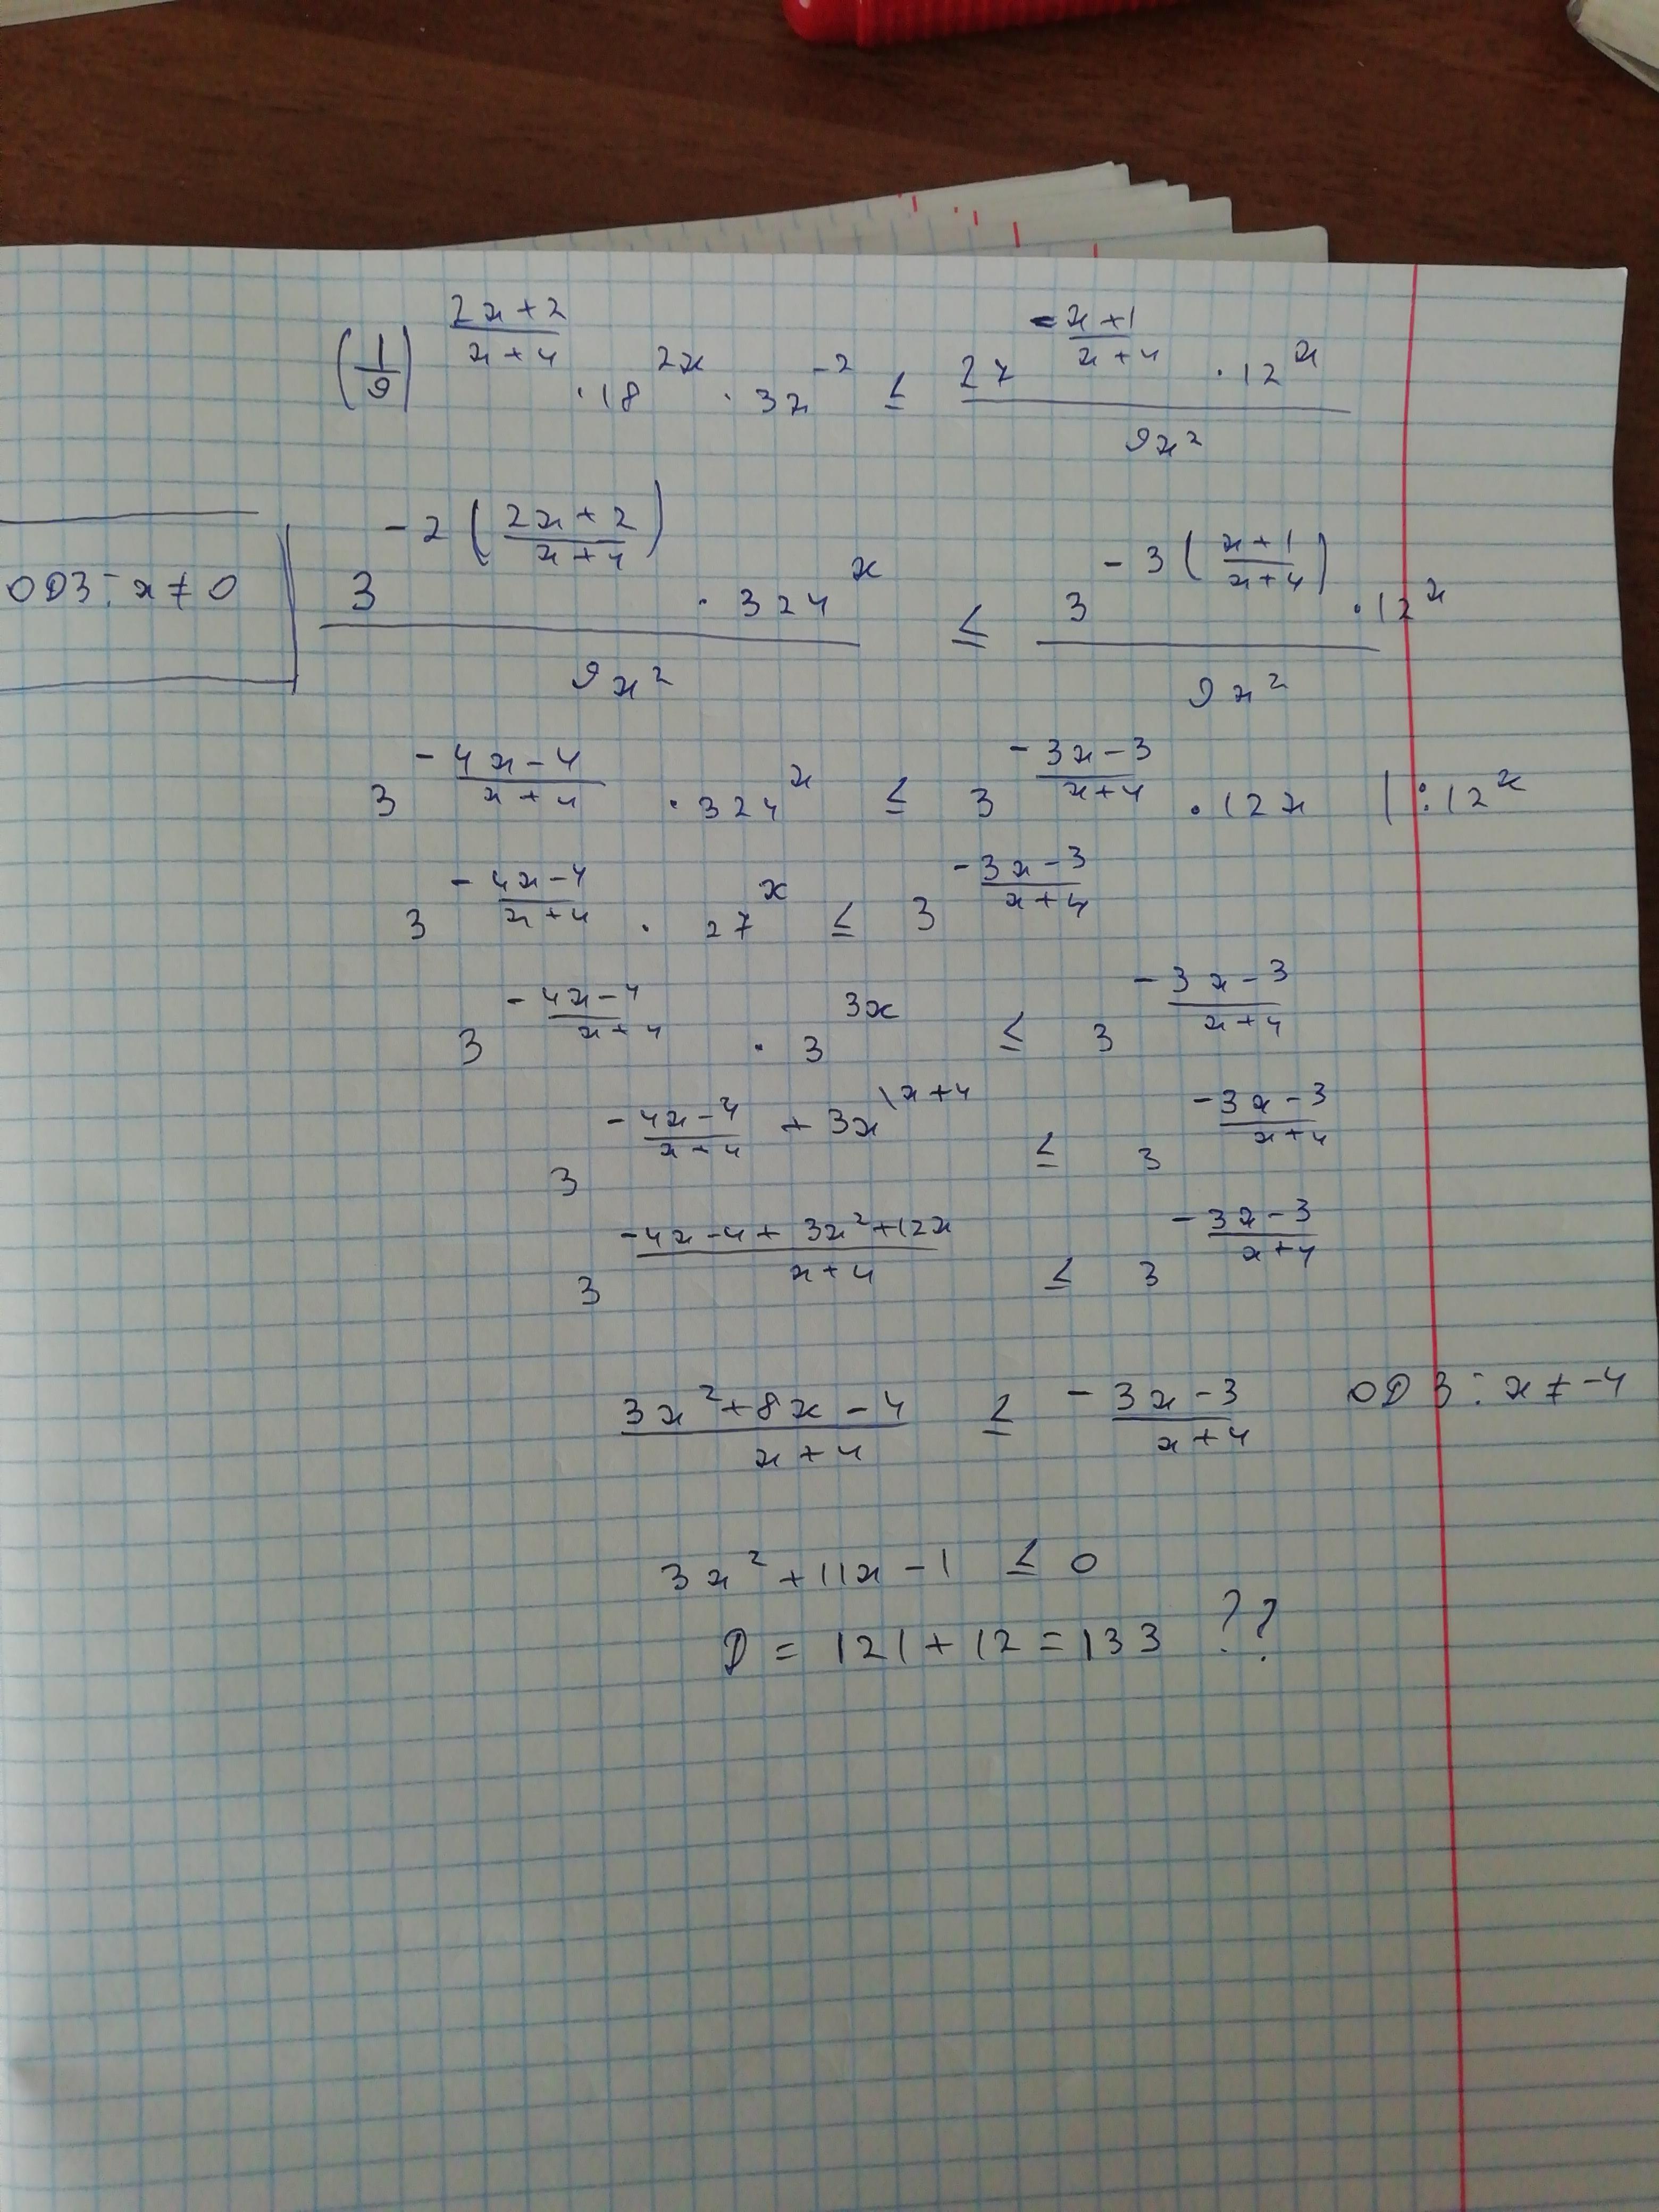 (1/9)^((2x+2)/(x+4)) · 18^(2x) · 3x^(-2) ≤ (27^(-(x+1)/(x+4)) · 12^x)/(9x²)
ОДЗ: x ≠ 0
(3^(-2((2x+2)/(x+4))) · 324^x)/(9x²) ≤ (3^(-3((x+1)/(x+4))) · 12^x)/(9x²)
3^(-(4x-4)/(x+4)) · 324^x ≤ 3^(-(3x-3)/(x+4)) · 12x | : 12^x
3^(-(4x-4)/(x+4)) · 27^x ≤ 3^(-(3x-3)/(x+4))
3^(-(4x-4)/(x+4)) · 3^(3x) ≤ 3^(-(3x-3)/(x+4))
3^(-(4x-4)/(x+4) + 3x^(\x+4)) ≤ 3^(-(3x-3)/(x+4))
3^((-4x-4+3x²+12x)/(x+4)) ≤ 3^(-(3x-3)/(x+4))
(3x²+8x-4)/(x+4) ≤ -(3x-3)/(x+4) ОДЗ: x ≠ -4
3x²+11x-1 ≤ 0
D = 121+12=133 ??